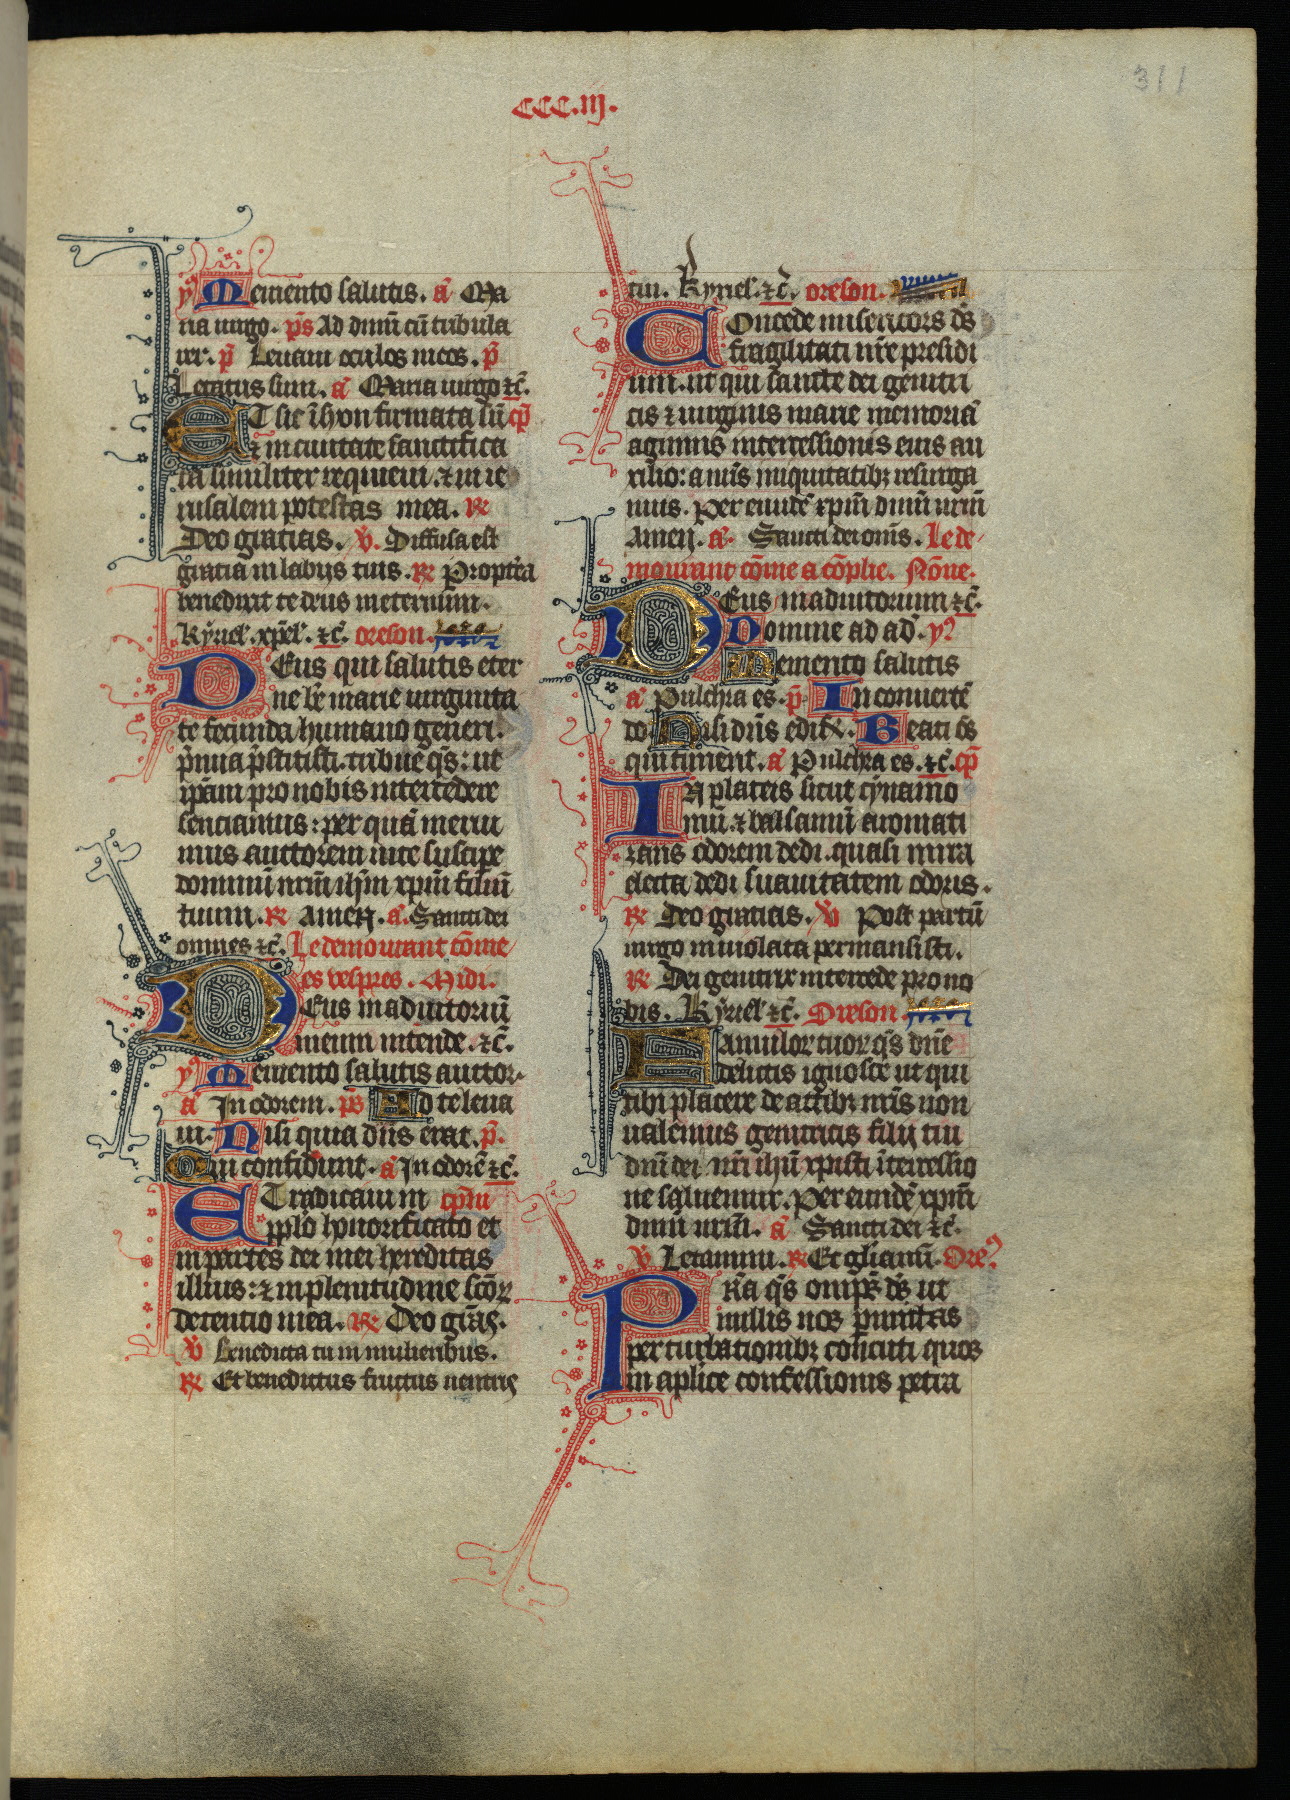 CCC.iij.
311
yꝰ Memento salutis. añ Ma
ria uirgo. ps̄ Ad dn̄m cū tribula
rer. p̄ Leuaui oculos meos. p̄
Letatus sum. añ Maria uirgo ⁊c̄.
ET sic ī syon firmata sū cap̄
⁊ in ciuitate sanctifica
ta similiter requieui. ⁊ in ie
rusalem potestas mea. ℟
Deo gratias. ℣. Diffusa est
gratia in labijs tuis. ℟ Propt̄ea
benedixit te deus ineternum.
Kyriel̕. xp̄el̕. ⁊c̄. oreson.
DEus qui salutis eter
ne bē marie uirginita
te fecunda humano generi.
p̄mia p̄stitisti. tribue q̄s: ut
ip̄am pro nobis intercedere
sentiamus: per quā merui
mus auctorem uite suscipe
dominū nr̄m ih̄m xp̄m filiū
tuum. ℟ Amen. añ. Sancti dei
omnes ⁊c̄. Le demourant cōme
es vespres. Midi.
DEus in adiutoriū
meum intende. ⁊c̄.
yꝰ Memento salutis auctor.
añ In odorem. ps̄ Ad te leua
ui. Nisi quia dn̄s erat. p̄.
Qui confidunt. añ In odorē ⁊c̄.
ET radicaui in cap̄lū
pp̄lo honorificato et
in partes dei mei hereditas
illius: ⁊ in plenitudine scōꝝ
detentio mea. ℟ Deo grās.
℣ Benedicta tu in mulieribus.
℟ Et benedictus fructus uentris
tui. Kyriel̕. ⁊c̄. oreson.
COncede misericors ds̄
fragilitati nr̄e presidi
um. ut qui sancte dei genitri
cis ⁊ uirginis marie memoriā
agimus intercessionis eius au
xilio: a nr̄is iniquitatibꝫ resurga
mus. Per eundē xp̄m dn̄m nr̄m
Amen. añ. Sancti dei om̄s. Le de
mourant cōme a cōplie. Nōne.
DEus in adiutorium ⁊c̄.
Domine ad ad̄. yꝰ
Memento salutis
añ Pulchra es. p̄ In conuertē
do Nisi dn̄s edifx̄. Beati ōs
qui timent. añ Pulchra es. ⁊c̄. cap̄
IN plateis sicut cynamo
mū. ⁊ balsamū aromati
zans odorem dedi. quasi mirra
electa dedi suauitatem odoris.
℟ Deo gratias. ℣ Post partū
uirgo inuiolata permansisti.
℟ Dei genitrix intercede pro no
bis. Kyriel̕ ⁊c̄. Oreson.
FAmulor tuor q̄s dn̄e
delictis ignosce ut qui
tibi placere de actibꝫ nr̄is non
ualemus genitricis filij tui
dn̄i dei nr̄i ih̄u xp̄isti īterressio
ne saluemur. Per eundē xp̄m
dn̄m nr̄m. añ Sancti dei ⁊c̄.
℣ Letamini. ℟ Et gl̄iamī. Oreꝰ
PRA q̄s omp̄s ds̄ ut
nullis nos p̄mittas
perturbationibꝫ concuti quos
in aplice confessionis petra